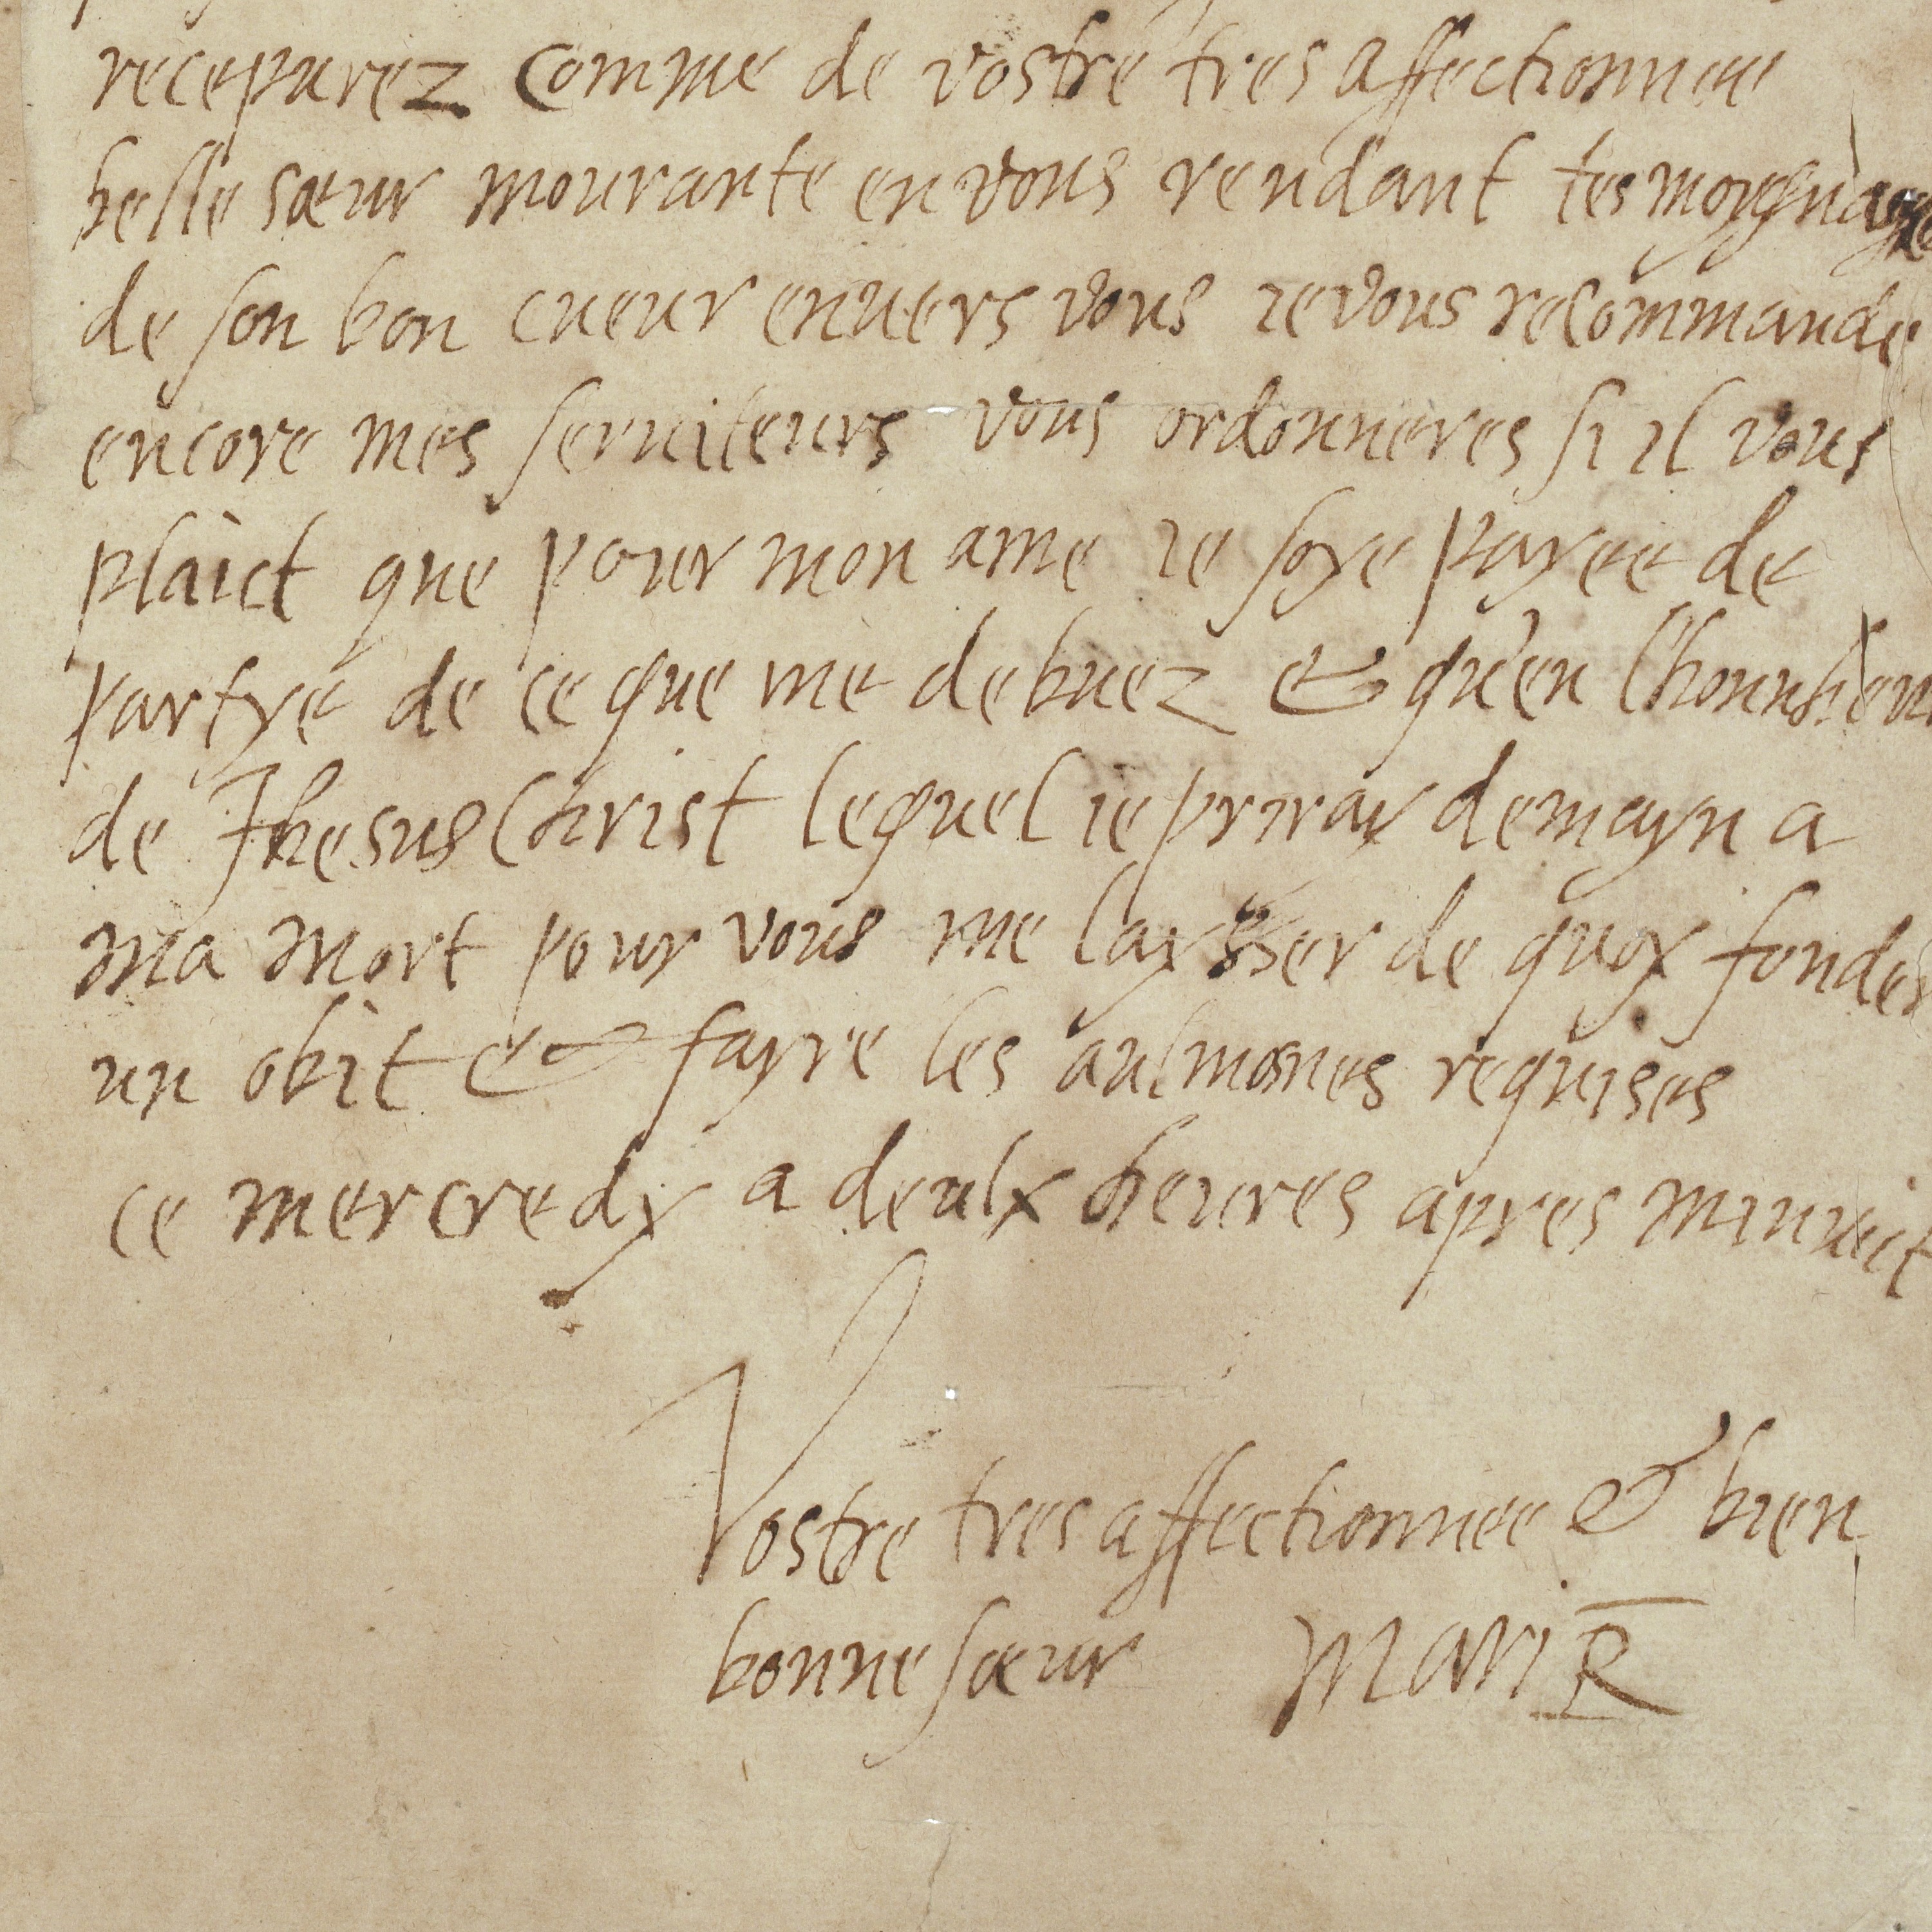 receparez comme de vostre tres affectionnee
belle sœur mourante en vous rendant tesmoygnage
de son bon cueur envers vous ie vous recommande
encore mes serviteurs vous ordonneres si il vous
plaict que pour mon ame ie soye payee de
partye de ce que me debuez & qu'en l'honneur
de Jhesus Christ lequel ie priray demayn a
ma mort pour vous me laysser de quoy fonder
un obit & fayre les aulmosnes requises
ce mercredy a deulx heures apres minuict
Vostre tres affectionnee & bien
bonne sœur Mari R